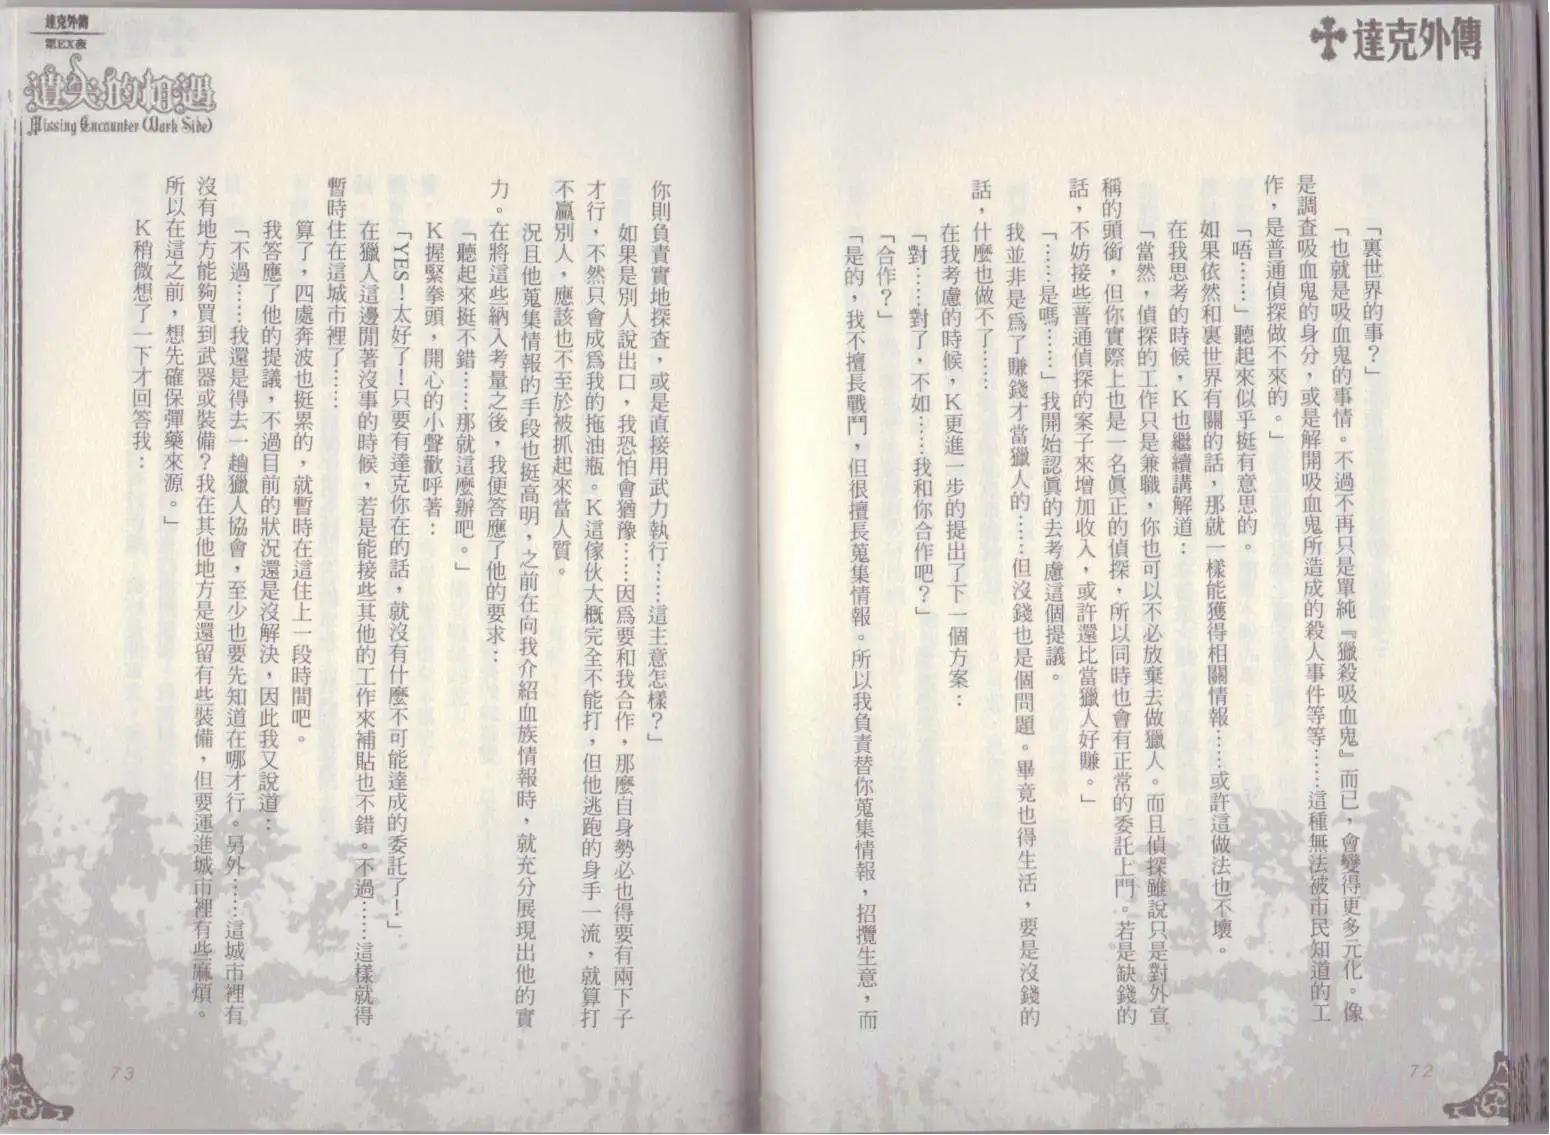 達克外傳
「裏世界的事？」
「也就是吸血鬼的事情。不過不再只是單純『獵殺吸血鬼』而已，會變得更多元化。像
是調查吸血鬼的身分，或是解開吸血鬼所造成的殺人事件等等……這種無法被市民知道的工
作，是普通偵探做不來的。」
「唔……」聽起來似乎挺有意思的。
如果依然和裏世界有關的話，那就一樣能獲得相關情報……或許這做法也不壞。
在我思考的時候，K也繼續講解道：
「當然，偵探的工作只是兼職，你也可以不必放棄去做獵人。而且偵探雖說只是對外宣
稱的頭銜，但你實際上也是一名真正的偵探，所以同時也會有正常的委託上門。若是缺錢的
話，不妨接些普通偵探的案子來增加收入，或許還比當獵人好賺。」
「……是嗎……」我開始認真的去考慮這個提議。
我並非是為了賺錢才當獵人的……但沒錢也是個問題。畢竟也得生活，要是沒錢的
話，什麼也做不了……
在我考慮的時候，K更進一步的提出了下一個方案：
「對……對了，不如……我和你合作吧？」
「合作？」
「是的，我不擅長戰鬥，但很擅長蒐集情報。所以我負責替你蒐集情報，招攬生意，而
72
達克外傳
第EX夜
遺失的相遇
Missing Encounter (Dark Side)
你則負責實地探查，或是直接用武力執行……這主意怎樣？」
如果是別人說出口，我恐怕會猶豫……因為要和我合作，那麼自身勢必也得要有兩下子
才行，不然只會成為我的拖油瓶。K這傢伙大概完全不能打，但他逃跑的身手一流，就算打
不贏別人，應該也不至於被抓起來當人質。
況且他蒐集情報的手段也挺高明，之前在向我介紹血族情報時，就充分展現出他的實
力。在將這些納入考量之後，我便答應了他的要求：
「聽起來挺不錯……那就這麼辦吧。」
K握緊拳頭，開心的小聲歡呼著：
「YES！太好了！只要有達克你在的話，就沒有什麼不可能達成的委託了！」
在獵人這邊閒著沒事的時候，若是能接些其他的工作來補貼也不錯。不過……這樣就得
暫時住在這城市裡了……
算了，四處奔波也挺累的，就暫時在這住上一段時間吧。
我答應了他的提議，不過目前的狀況還是沒解決，因此我又說道：
「不過……我還是得去一趟獵人協會，至少也要先知道在哪才行。另外……這城市裡有
沒有地方能夠買到武器或裝備？我在其他地方是還留有些裝備，但要運進城市裡有些麻煩。
所以在這之前，想先確保彈藥來源。」
K稍微想了一下才回答我：
73